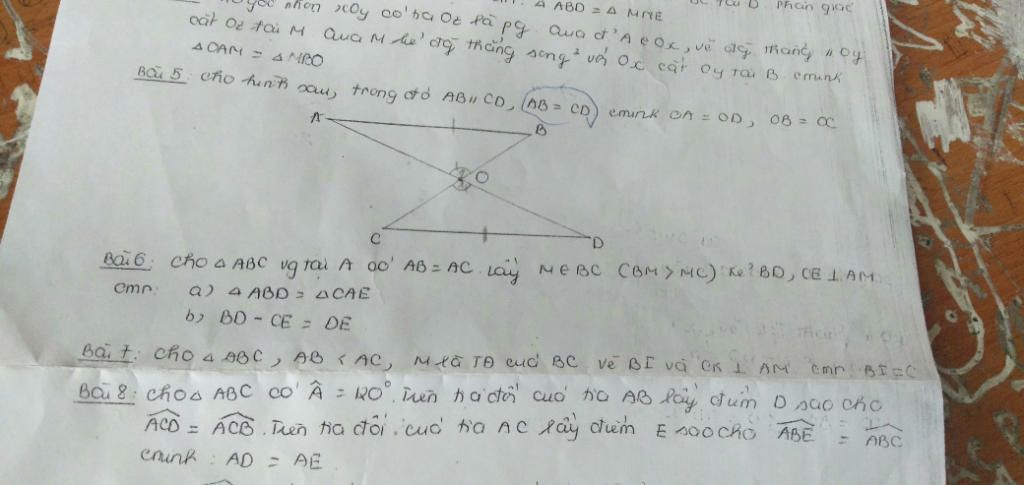 Δ ABD = Δ MNE
góc nhọn xOy có tia Oz là pg. Qua đ' A ∈ Ox, vẽ đg thẳng // Oy
cắt Oz tại M Qua M kẻ đg thẳng song² với Ox cắt Oy tại B. cmink
Δ OAM = Δ MBO
Bài 5: cho hình sau, trong đó AB // CD, AB = CD cmink OA = OD, OB = OC
A
B
O
C
D
Bài 6: cho Δ ABC vg tại A có AB = AC. lấy M ∈ BC (BM > MC) Kẻ BD, CE ⊥ AM.
cmr: a) Δ ABD = Δ CAE
b) BD - CE = DE
Bài 7: cho Δ ABC, AB < AC, M là TĐ của BC vẽ BI và CK ⊥ AM cmr: BI = C
Bài 8: cho Δ ABC có Â = 120°. Trên tia đối của tia AB lấy điểm D sao cho
ACD = ACB. Trên tia đối của tia AC lấy điểm E sao cho ABE = ABC
cmink: AD = AE